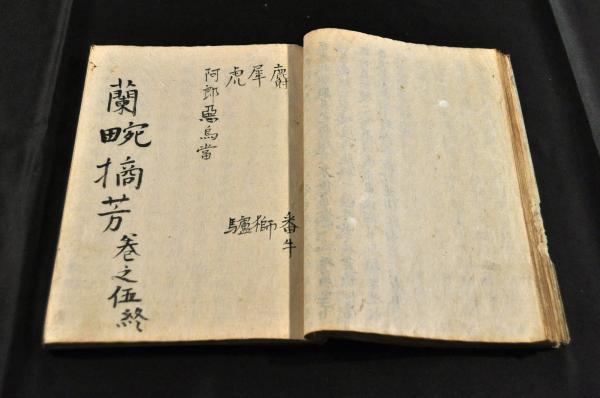 麝　番牛
犀　獅
虎　驢
阿郎悪烏當
蘭畹摘芳卷之伍終